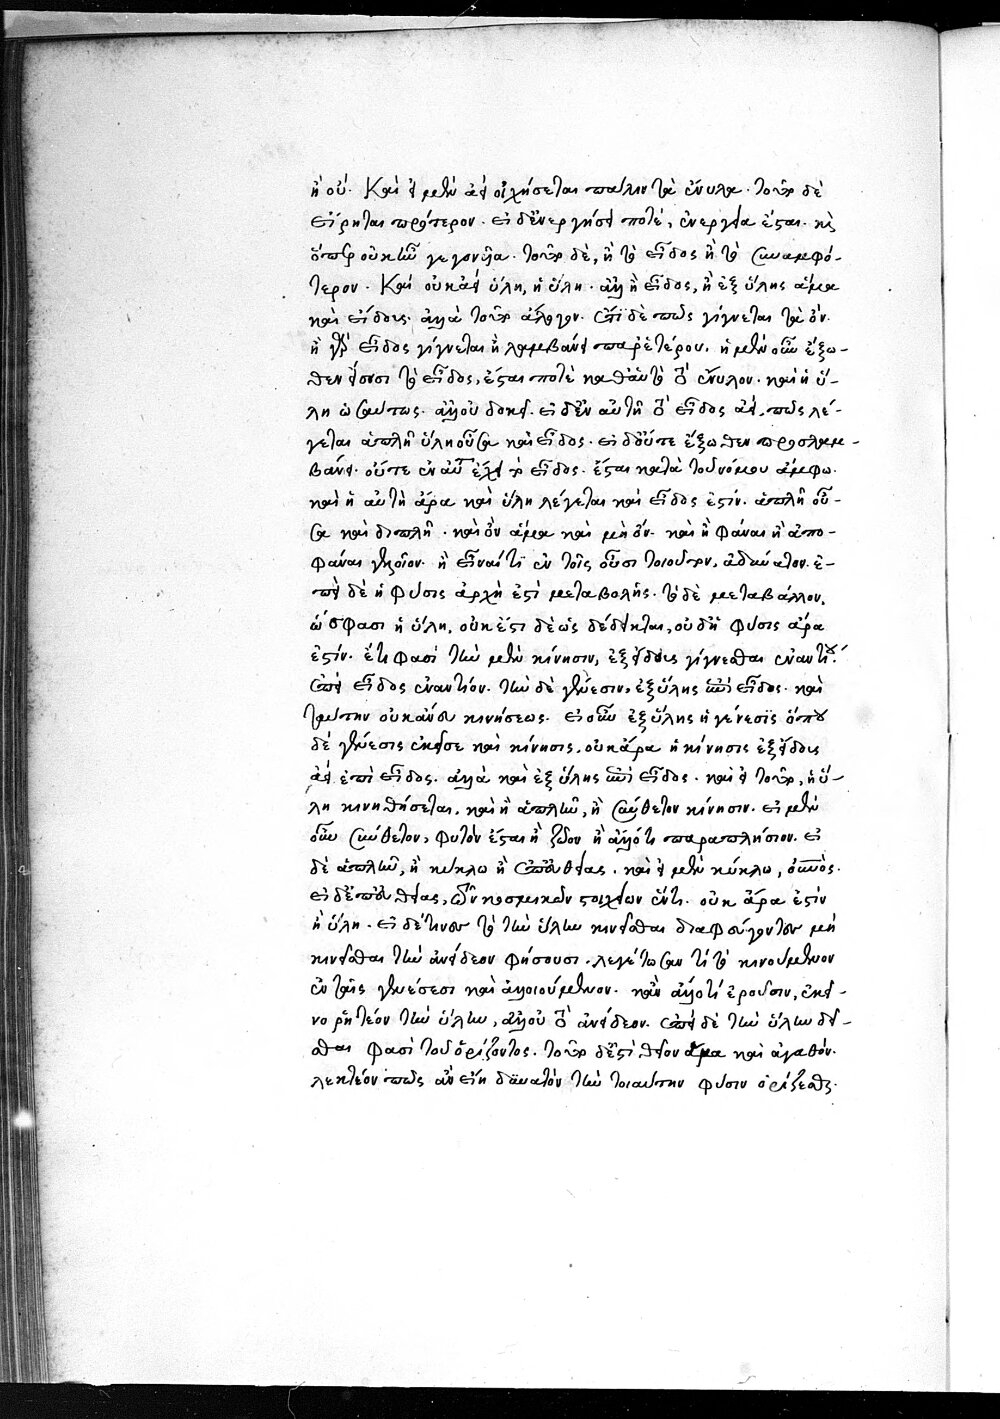 ἢ οὔ. Καὶ εἰ μὲν ἀεὶ οἰχήσεται πάλιν τὰ ἔνυλα. τοῦτο δὲ
εἴρηται πρότερον. εἰ δὲ ἐνεργήσει ποτέ, ἐνεργείᾳ ἔσται. καὶ
ὅπερ οὐκ ἦν γεγονυῖα. τοῦτο δὲ, ἢ τὸ εἶδος ἢ τὸ συναμφό-
τερον. Καὶ οὐκ ἀεὶ ὕλη, ἡ ὕλη. ἀλλ' ἢ εἶδος, ἢ ἐξ ὕλης ἅμα
καὶ εἴδους. ἀλλὰ τοῦτο ἄλογον. ἐπεὶ δὲ πῶς γίγνεται τὸ ὄν.
ἢ γὰρ εἶδος γίγνεται ἢ λαμβάνει παρ' ἑτέρου. εἰ μὲν οὖν ἔξω-
θεν ἴσχει τὸ εἶδος, ἔσται ποτὲ καθ' αὑτὸ τὸ ἔνυλον. καὶ ἡ ὕ-
λη ὡσαύτως. ἀλλ' οὐ δοκεῖ. εἰ δ' ἐν αὐτῇ τὸ εἶδος ἀεί, πῶς λέ-
γεται ἁπλῆ ὕλη οὖσα καὶ εἶδος. εἰ δ' οὔτε ἔξωθεν προσλαμ-
βάνει. οὔτε ἐν αὑτῇ ἔχει τὸ εἶδος. ἔσται κατὰ τοὐνόμου ἄμφω.
καὶ ἡ αὐτὴ ἄρα καὶ ὕλη λέγεται καὶ εἶδός ἐστιν. ἁπλῆ οὖ-
σα καὶ διπλῆ. καὶ ὂν ἅμα καὶ μὴ ὄν. καὶ ἢ φάναι ἢ ἀπο-
φάναι γελοῖον. ἢ εἶναί τι ἐν τοῖς οὖσι τοιοῦτον, ἀδύνατον. ἐ-
πεὶ δὲ ἡ φύσις ἀρχή ἐστι μεταβολῆς. τὸ δὲ μεταβάλλον,
ὥς φασι ἡ ὕλη, οὐκ ἔστι δὲ ὡς δέδεικται, οὐδ' ἡ φύσις ἄρα
ἐστίν. ἔτι φασὶ τὴν μὲν κίνησιν, ἐξ εἴδους γίγνεσθαι ἐναντίου
ἐπὶ εἶδος ἐναντίον. τὴν δὲ γένεσιν, ἐξ ὕλης ἐπὶ εἶδος. καὶ
ταύτην οὐκ ἄνευ κινήσεως. εἰ οὖν ἐξ ὕλης ἡ γένεσις ὅπου
δὲ γένεσις ἐκεῖσε καὶ κίνησις, οὐκ ἄρα ἡ κίνησις ἐξ εἴδους
ἀεὶ ἐπὶ εἶδος. ἀλλὰ καὶ ἐξ ὕλης ἐπὶ εἶδος. καὶ εἰ τοῦτο, ἡ ὕ-
λη κινηθήσεται. καὶ ἢ ἁπλῆν, ἢ σύνθετον κίνησιν. εἰ μὲν
οὖν σύνθετον, φυτὸν ἔσται ἢ ζῶον ἢ ἄλλό τι παραπλήσιον. εἰ
δὲ ἁπλῆν, ἢ κύκλω ἢ ἐπ' εὐθείας. καὶ εἰ μὲν κύκλω, οὐρανός.
εἰ δ' ἐπ' εὐθείας, τῶν κοσμικῶν στοιχείων ἕν τι. οὐκ ἄρα ἐστὶν
ἡ ὕλη. εἰ δέ τινες τὸ τὴν ὕλην κινεῖσθαι διαφεύγοντες μὴ
κινεῖσθαι τὴν ἀνείδεον φήσουσι. λεγέτωσαν τί τὸ κινούμενον
ἐν ταῖς γενέσεσι καὶ ἀλλοιούμενον. κἂν ἄλλό τι ἐροῦσιν, ἐκεῖ-
νο ῥητέον τὴν ὕλην, ἀλλ' οὐ τὸ ἀνείδεον. ἐπεὶ δὲ τὴν ὕλην δεῖ-
σθαι φασὶ τοῦ ὁρίζοντος. τοῦτο δέ ἐστι θεῖον ἅμα καὶ ἀγαθόν.
λεκτέον πῶς ἂν εἴη δυνατὸν τὴν τοιαύτην φύσιν ὁρίζεσθαι.